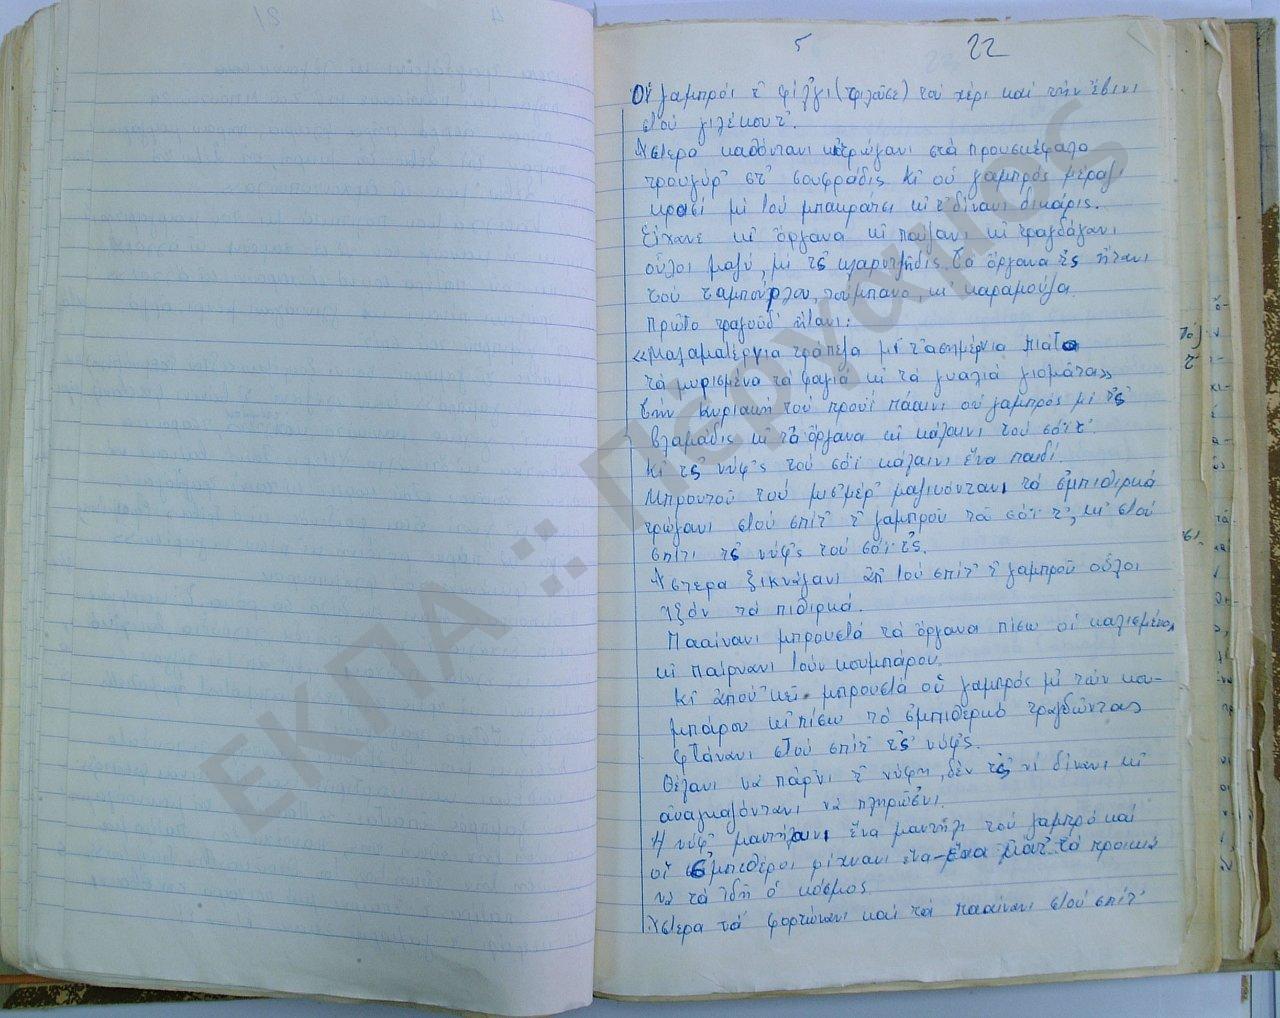 5 22
Οὑ γαμπρός τ᾿ φίλγι (φιλοῦσε) τού χέρι καί τήν ἔβινι
στού γιλέκου τ᾿.
Ὑστερα καθόντανι κι τρώγανι στά προυσκέφαλα
τρουγύρ᾿ στ᾿ σουφράδις κι οὑ γαμπρός μέραζι
κρασί μι τού μπακράτσι κι τ᾿ δίνανι δικάρις.
Εἴχανε κι ὄργανα κι παίζανι κι τραγδάγανι
οὗλοι μαζύ, μι τς Τά ὄργανα τς ἤτανι
τού ταμπούρλου, τούμπανο, κι καραμούζα.
Πρῶτο τραγούδ᾿ ἤτανι:
«Μαλαματέργια τράπεζα μέ τ᾿ ἀσημένια πιάτα
τά μυρισμένα τά φαγιά κι τά γυαλιά γιομάτα»
Τήν Κυριακή τού πρωΐ πάαινι οὑ γαμπρός μι τς
βλαμάδις κι τά ὄργανα κι κάλαινι τού σόϊ τ᾿.
Κι τς νύφ᾿ς τού σόϊ κάλαινι ἕνα παιδί.
Μπρουτού τού μισμέρ᾿ μαζιυόντανι τά σμπιθιρκά
τρώγανι στού σπίτ᾿ τ᾿ γαμπροῦ τό σόϊ τ᾿, κι στού
σπίτι τς νύφ᾿ς τού σόϊ τς.
Ὑστερα ξικνάγανι ἀπ᾿ τού σπίτ᾿ τ᾿ γαμπροῦ οὗλοι
τά πιθιρκά.
Πααίνανι μπρουστά τά ὄργανα πίσω οἱ καλισμένοι
κι παίρνανι τούν κουμπάρου.
Κι ἀπού κεῖ μπρουστά οὑ γαμπρός μι τούν κου-
μπάρου κι πίσω τό σμπιθέρκό τραγδῶντας
φτάνανι στού σπίτ᾿ τς νύφ᾿ς.
Θέλανι νά πάρ᾿νι τ᾿ νύφη, δέν τς νί δίνανι κι
ἀναγκαζόντανι νά πληρώσ᾿νι.
Η νύφ᾿ ἕνα μαντήλι τού γαμπρό καί
οἱ σμπιθέροι ρίχνανι ἕνα-ἕνα τά προικιά
νά τά ἰδῆ ὁ κόσμος.
Ὑστερα τά φορτώνανι καί τά πααίνανι στού σπίτ᾿
ΕΚΠΑ :: Περγαμος